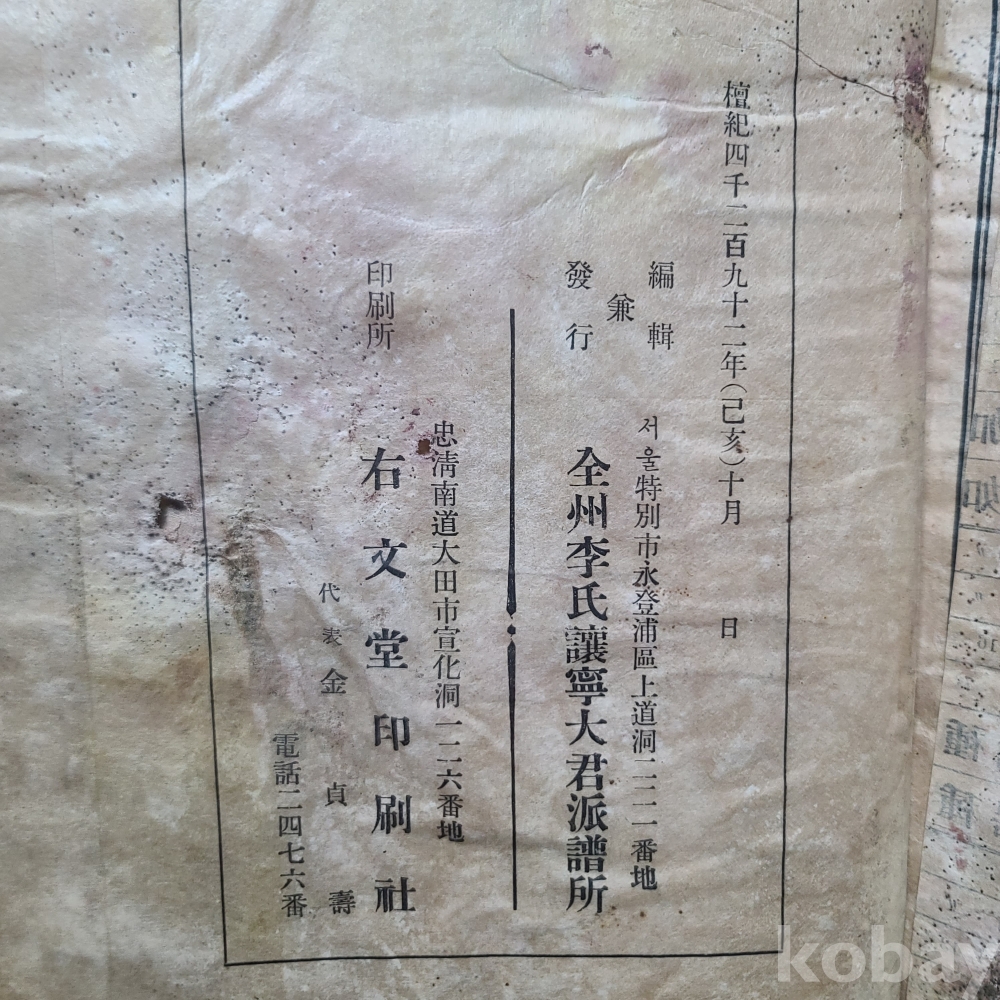 檀紀四千二百九十二年(己亥)十月 日
編輯
兼
發行
서울特別市永登浦區上道洞二二一番地
全州李氏讓寧大君派譜所
印刷所
忠淸南道大田市宣化洞一二六番地
右文堂印刷社
代表 金貞壽
電話二四七六番
kobay